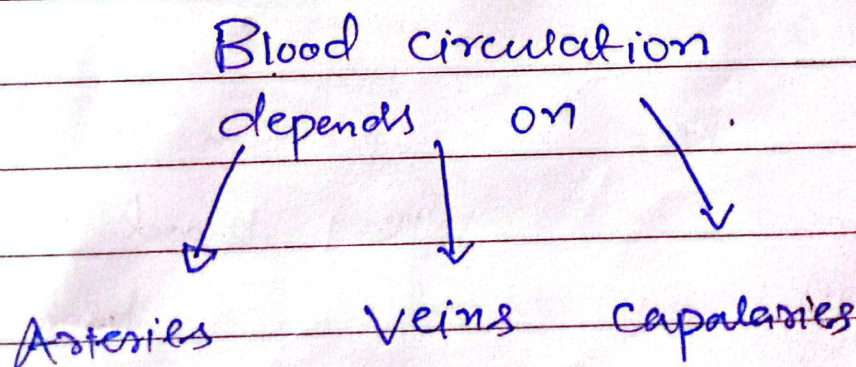 Blood circulation
depends on
Arteries Veins Capalaries